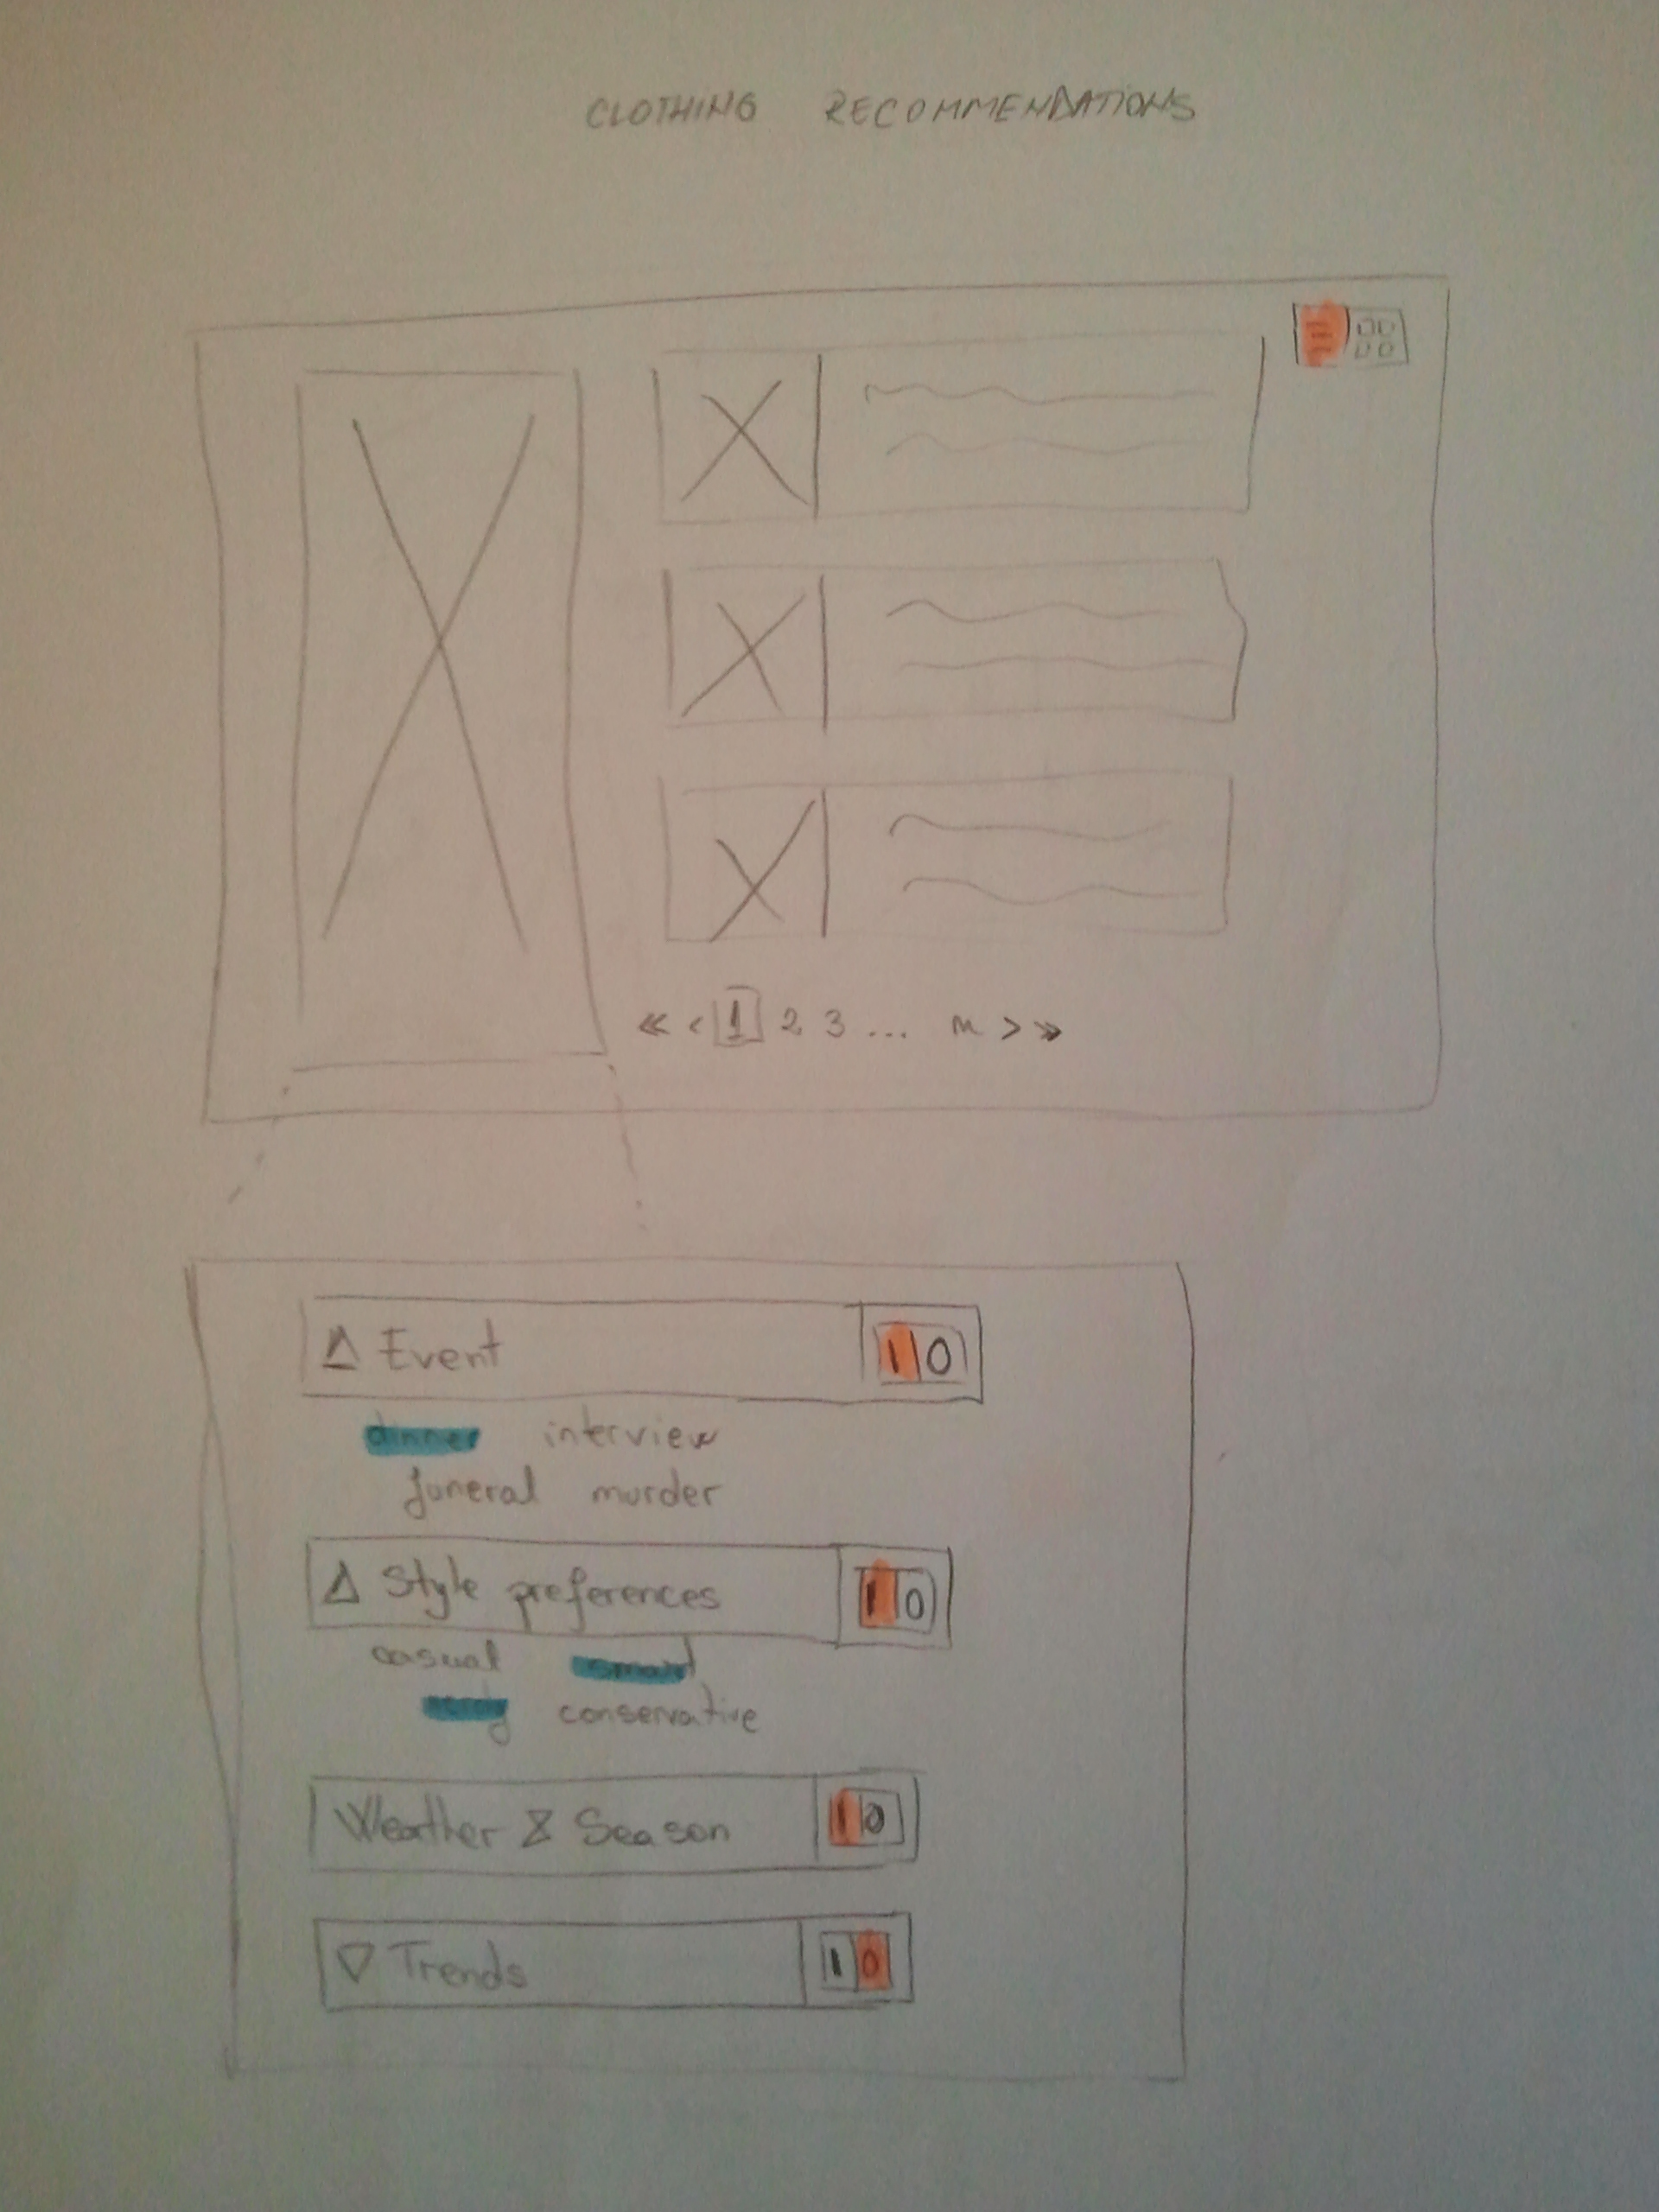 CLOTHING RECOMMENDATIONS
« < 1 2 3 ... n > »
Event 1 0
dinner interview
funeral murder
Style preferences 1 0
casual smart
nerdy conservative
Weather & Season 1 0
Trends 1 0